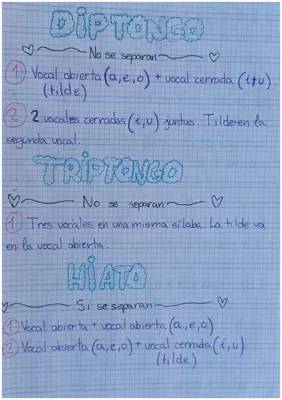 DIPTONGO
No se separan
1 Vocal abierta (a,e,o) + vocal cerrada (i,u)
(tilde)
2 2 vocales cerradas (i,u) juntas. Tilde en la
segunda vocal.
TRIPTONGO
No se separan
1 Tres vocales en una misma sílaba. La tilde va
en la vocal abierta.
HIATO
Sí se separan
1 Vocal abierta + vocal abierta (a,e,o)
2 Vocal abierta (a,e,o) + vocal cerrada (i,u)
(tilde)